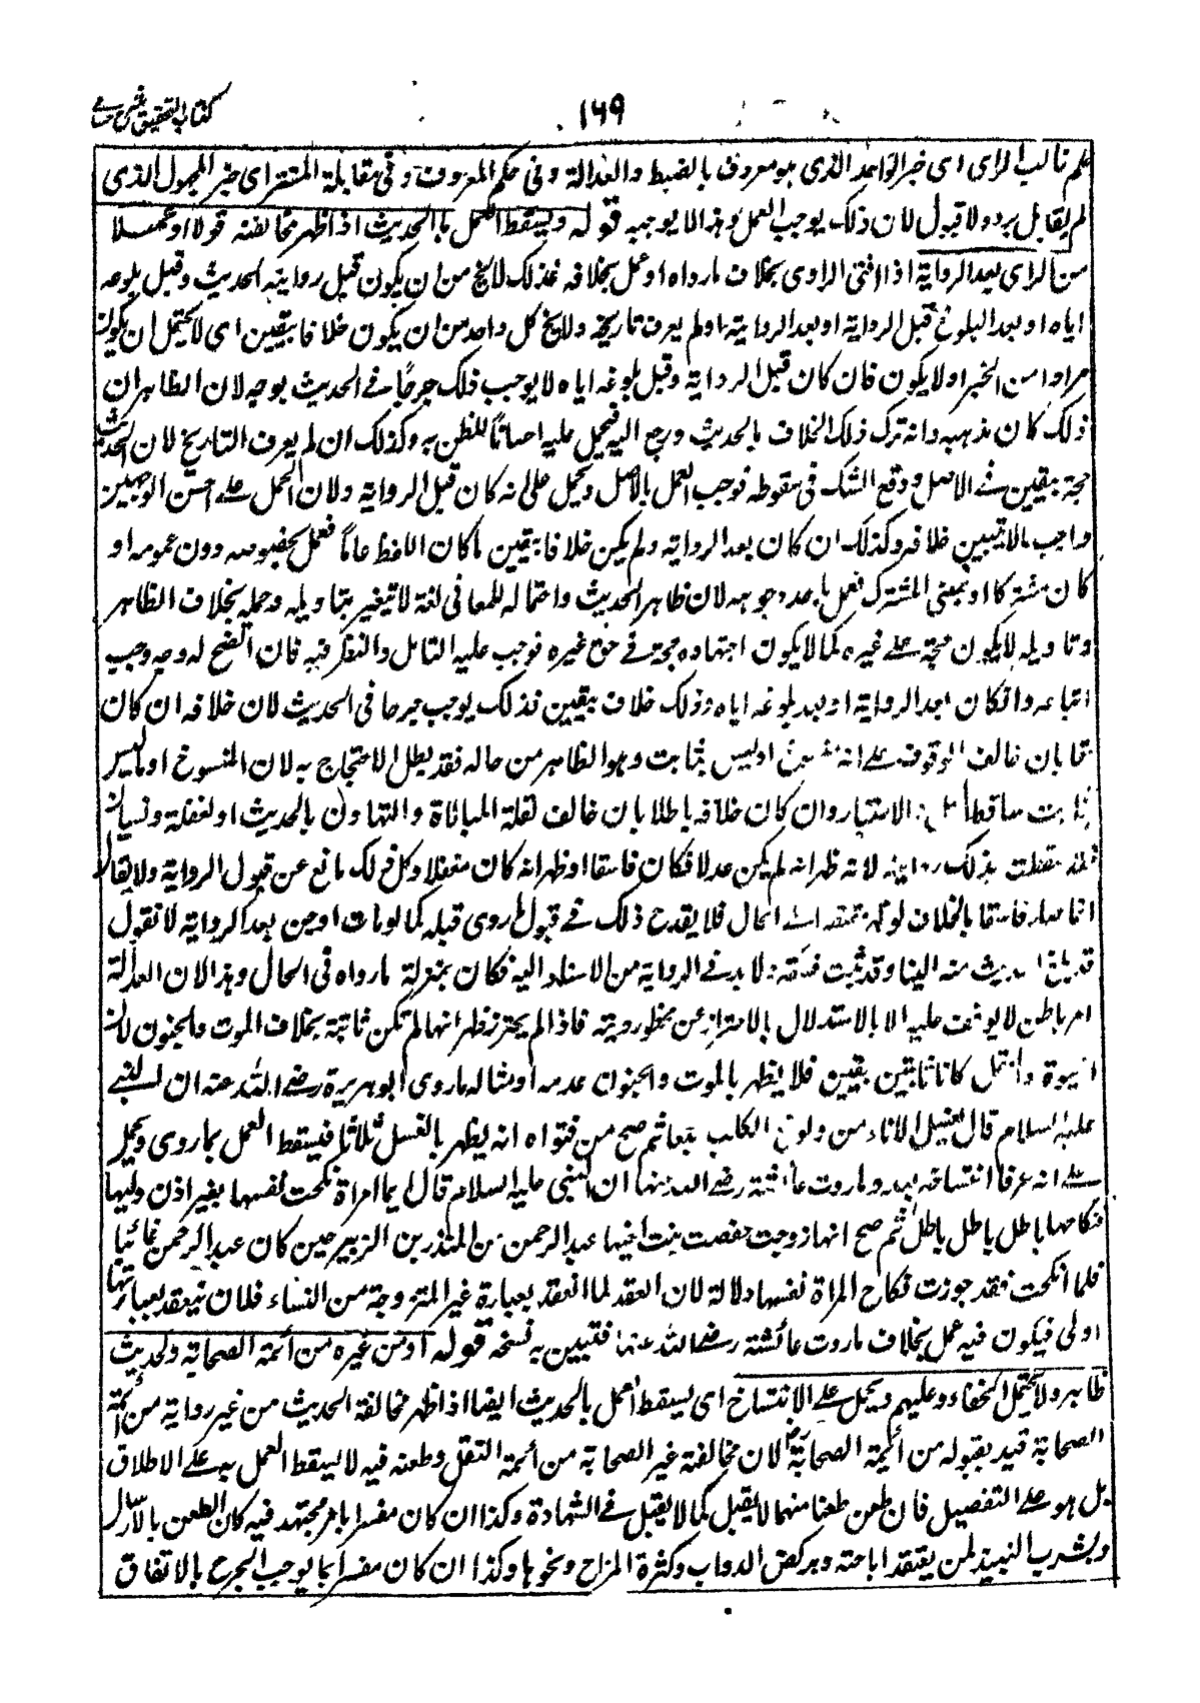 ١٦٩ كتاب التحقيق شرح حسامي
علم غالب الراى اى خبر الواحد الذى هو معروف بالضبط والعدالة وفى حكم المعروف وفى مقابلة المستتر اى خبر المجهول الذى
لم يقابل برد ولا قبول لان ذلك يوجب العمل وهذا لا يوجبه قوله ويسقط العمل بالحديث اذا ظهر مخالفته قولا او عملا
من الراى بعد الرواية اذا افتى الراوى بخلاف ما رواه او عمل بخلافه فذلك لا يخ من ان يكون قبل روايته الحديث وقبل بلوغه
اياه او بعد البلوغ قبل الرواية او بعد الرواية او لم يعرف تاريخه ولا يخ كل واحد من ان يكون خلافا بيقين اى لا يحتمل ان يكون
مرادا من الخبر او لا يكون فان كان قبل الرواية وقبل بلوغه اياه لا يوجب ذلك جرحا فى الحديث بوجه لان الظاهر ان
ذلك كان مذهبه وانه ترك ذلك الخلاف بالحديث ورجع اليه فيحمل عليه احسانا للظن به وكذلك ان لم يعرف التاريخ لان الحديث
حجة بيقين فى الاصل ووقع الشك فى سقوطه فوجب العمل بالاصل ويحمل على انه كان قبل الرواية ولان الحمل على احسن الوجهين
واجب مالا يتبين خلافه وكذلك ان كان بعد الرواية ولم يكن خلافا بيقين بان كان اللفظ عاما فعمل بخصوصه دون عمومه او
كان مشتركا او بمعنى المشترك فعمل باحد وجوهه لان ظاهر الحديث واحتماله للمعانى لغة لا تيغير بتاويله وحمله بخلاف الظاهر
وتاويله لا يكون حجة على غيره كما لا يكون اجتهاده حجة فى حق غيره فوجب عليه التامل والنظر فيه فان اتضح له وجه وجب
اتباعه وان كان بعد الرواية او بعد بلوغه اياه وذلك خلاف بيقين فذلك يوجب جرحا فى الحديث لان خلافه ان كان
حقا بان خالف للوقوف على انه منسوخ او ليس بثابت وهو الظاهر من حاله فقد بطل الاحتجاج به لان المنسوخ او ما ليس
بثابت ساقط الاعتبار وان كان خلافه باطلا بان خالف لقلة المبالاة والتهاون بالحديث او لغفلة ونسيان
فقد سقطت بذلك روايته لانه ظهر انه لم يكن عدلا فكان فاسقا او ظهر انه كان مغفلا وكل ذلك مانع عن قبول الرواية ولا يقال
انما صار فاسقا بالخلاف الحال فلا يقدح ذلك فى قبول ما روى قبله كما لو مات او جن بعد الرواية لانا نقول
قد بلغ الحديث منه الينا وقد ثبت فسقه ولا بد فى الرواية من الاسناد اليه فكان بمنزلة ما رواه فى الحال وهذا لان العدالة
امر باطن لا يوقف عليه الا بالاستدلال بالاحتراز عن محظور دينه فاذا لم يحترز ظهر انها لم تكن ثابتة بخلاف الموت والجنون لان
الحيوة والعقل كانا ثابتين بيقين فلا يظهر بالموت والجنون عدمه او مثاله ما روى ابو هريرة رضى الله عنه ان النبى
عليه السلام قال يغسل الاناء من ولوغ الكلب سبعا ثم صح من فتواه انه يطهر بالغسل ثلاثا فيسقط العمل بما روى ويحمل
على انه عرف انتساخه وما روت عائشة رضى الله عنها ان النبى عليه السلام قال ايما امراة نكحت نفسها بغير اذن وليها
فنكاحها باطل باطل باطل ثم صح انها زوجت حفصت بنت اخيها عبد الرحمن من المنذر بن الزبير حين كان عبد الرحمن غائبا
فلما انكحت فقد جوزت نكاح المراة نفسها دلالة لان العقد لما انعقد بعبارة غير المتزوجة من النساء فلان ينعقد بعبارتها
اولى فيكون فيه عمل بخلاف ما روت عائشة رضى الله عنها فتبين به نسخه قوله او من غيره من ائمة الصحابة والحديث
ظاهر ولا يحتمل الخفاء عليهم ويحمل على الانتساخ اى يسقط العمل بالحديث ايضا اذا ظهر مخالفة الحديث من غير رواية من ائمة
الصحابة قيد بقوله من ائمة الصحابة لان مخالفة غير الصحابة من ائمة النقل وطعنه فيه لا يسقط العمل به على الاطلاق
بل هو على التفصيل فان طعن طعنا مبهما لا يقبل كما لا يقبل فى الشهادة وكذا ان كان مفسرا بامر مجتهد فيه كان الطعن بالارسال
وبشرب النبيذ لمن يعتقد اباحته وبركض الدواب وكثرة المزاح ونحوها وكذا ان كان مفسرا بما يوجب الجرح بالاتفاق